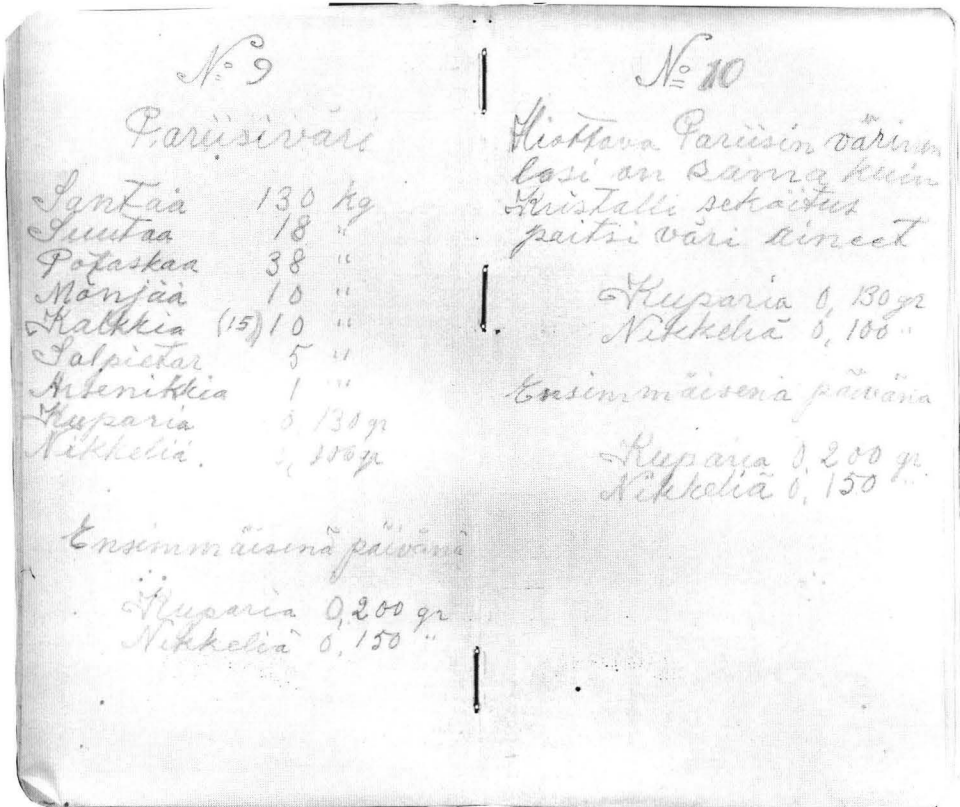 № 9
Pariisiväri
Santaa 130 kg
Suutaa 18 "
Potaskaa 38 "
Mönjää 10 "
Kalkkia (15) 10 "
Salpietar 5 "
Arsenikkia 1 "
Kuparia 0,130 gr
Nikkeliä. 0,100 gr
Ensimmäisenä päivänä
Kuparia 0,200 gr
Nikkeliä 0,150 "
№ 10
Hiottava Pariisin värinen
lasi on sama kuin
Kristalli sekoitus
paitsi väri aineet
Kuparia 0,130 gr
Nikkeliä 0,100 "
Ensimmäisenä päivänä
Kuparia 0,200 gr.
Nikkeliä 0,150 "